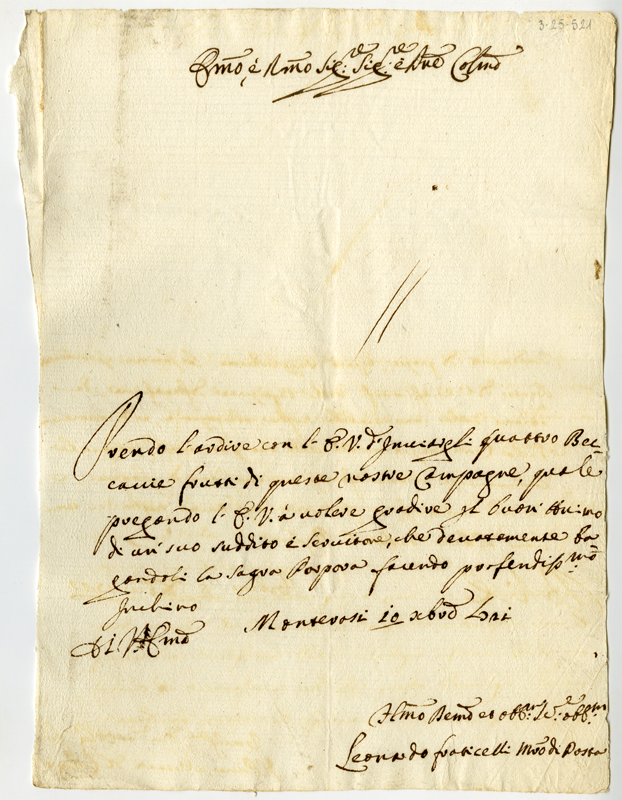 3-25-521
Emo e Rmo Sig.re Sig.re e Pne Colmo
Prendo l'ardire con l'E.V. d'Inviargli quattro Bec
cacie frutti di queste nostre Campagne, quale
pregando l'E.V. à volere gradire il buon attimo
di un suo suddito e servitore, che devotamente ba
gandoli la sagra Porpora facendo porfendiss.mo
Inchino
Di V. Emza Monterosi 10 xbre
Hmo Demo et obb.mo Ser.re obb.mo
Leonardo fraticelli Mro di Posta